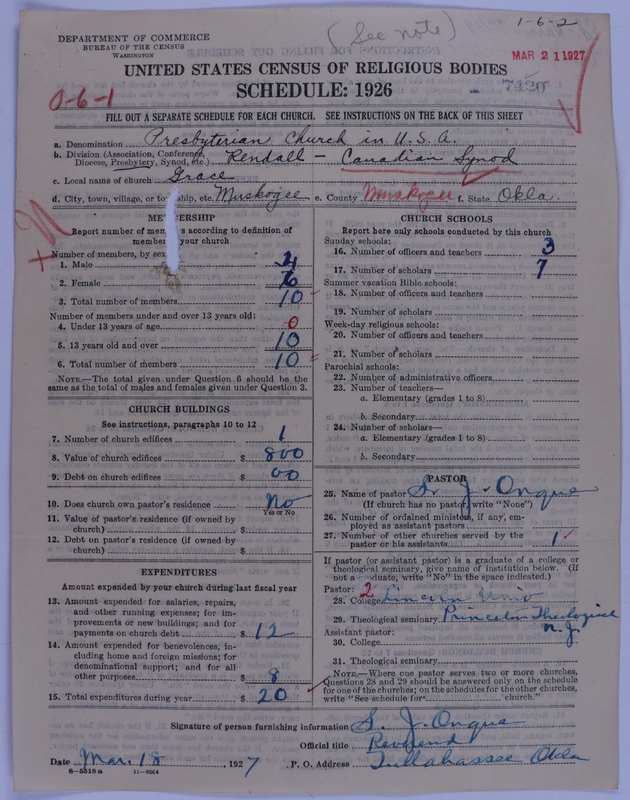 1-6-2
(See note)
DEPARTMENT OF COMMERCE
BUREAU OF THE CENSUS
WASHINGTON
MAR 21 1927
UNITED STATES CENSUS OF RELIGIOUS BODIES
SCHEDULE: 1926
7420
0-6-1
FILL OUT A SEPARATE SCHEDULE FOR EACH CHURCH. SEE INSTRUCTIONS ON THE BACK OF THIS SHEET
a. Denomination Presbyterian Church in U.S.A.
b. Division (Association, Conference, Diocese, Presbytery, Synod, etc.) Rendall - Canadian Synod
c. Local name of church Grace
d. City, town, village, or township, etc. Muskogee e. County Muskogee f. State Okla.
MEMBERSHIP
Report number of members according to definition of member your church
Number of members, by sex
1. Male 4
2. Female 6
3. Total number of members 10
Number of members under and over 13 years old:
4. Under 13 years of age 0
5. 13 years old and over 10
6. Total number of members 10
NOTE.—The total given under Question 6 should be the same as the total of males and females given under Question 3.
CHURCH BUILDINGS
See instructions, paragraphs 10 to 12
7. Number of church edifices 1
8. Value of church edifices $ 800
9. Debt on church edifices $ 00
10. Does church own pastor's residence No
Yes or No
11. Value of pastor's residence (if owned by church) $
12. Debt on pastor's residence (if owned by church) $
EXPENDITURES
Amount expended by your church during last fiscal year
13. Amount expended for salaries, repairs, and other running expenses; for improvements or new buildings; and for payments on church debt $ 12
14. Amount expended for benevolences, including home and foreign missions; for denominational support; and for all other purposes $ 8
15. Total expenditures during year $ 20
CHURCH SCHOOLS
Report here only schools conducted by this church
Sunday schools:
16. Number of officers and teachers 3
17. Number of scholars 7
Summer vacation Bible schools:
18. Number of officers and teachers
19. Number of scholars
Week-day religious schools:
20. Number of officers and teachers
21. Number of scholars
Parochial schools:
22. Number of administrative officers
23. Number of teachers—
a. Elementary (grades 1 to 8)
b. Secondary
24. Number of scholars—
a. Elementary (grades 1 to 8)
b. Secondary
PASTOR
25. Name of pastor S. J. Onque
(If church has no pastor, write "None")
26. Number of ordained ministers, if any, employed as assistant pastors
27. Number of other churches served by the pastor or his assistants 1
If pastor (or assistant pastor) is a graduate of a college or theological seminary, give name of institution below. (If not a graduate, write "No" in the space indicated.)
Pastor: 2
28. College Lincoln Univ
29. Theological seminary Princeton Theological N. J.
Assistant pastor:
30. College
31. Theological seminary
NOTE.—Where one pastor serves two or more churches, Questions 28 and 29 should be answered only on the schedule for one of the churches; on the schedules for the other churches, write "See schedule for church."
Signature of person furnishing information S. J. Onque
Official title Reverend
Date Mar. 18, 1927 P. O. Address Tullahassee Okla
8-5518a 11-9064